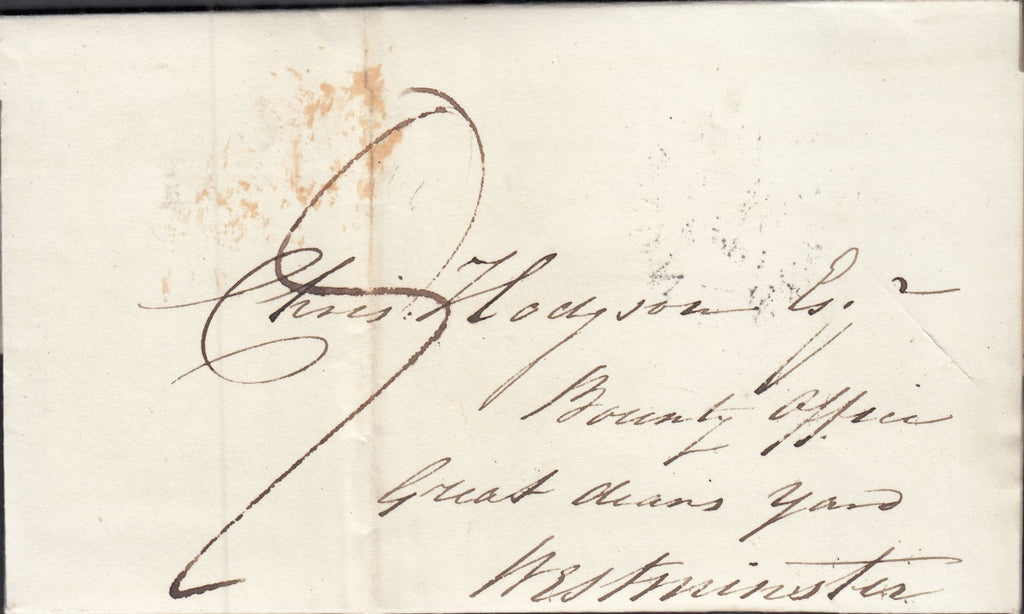 Chris. Hodgson Esqr
Bounty Office
Great deans yard
Westminster